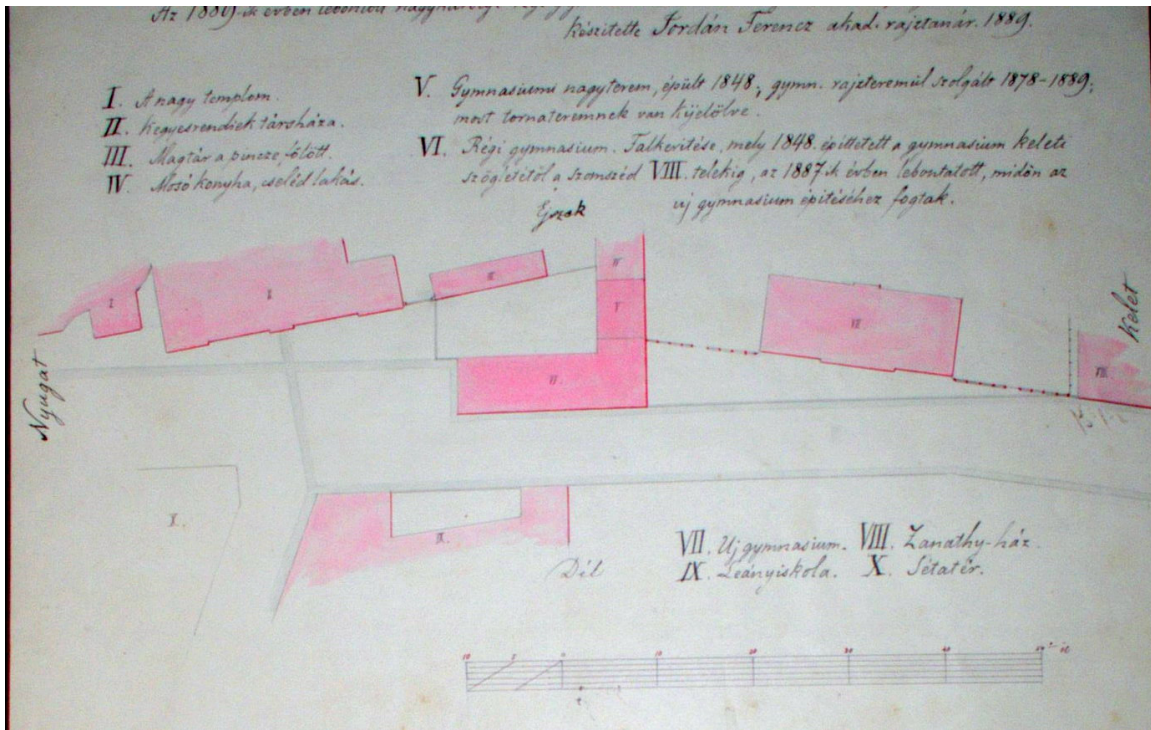 Az 1889-ik évben lebontott
készitette Jordán Ferencz akad. rajztanár. 1889.
I. A nagy templom.
II. Kegyesrendiek társháza.
III. Magtár a pincze fölött.
IV. Mosó konyha, cseléd lakás.
V. Gymnasiumi nagyterem, épült 1848; gymn. rajzteremül szolgált 1878-1889;
most tornateremnek van kijelölve.
VI. Régi gymnasium. Falkeritése, mely 1848. épittetett a gymnasium keleti
szögletétöl a szomszéd VIII. telekig, az 1887-ik évben lebontatott, midön az
uj gymnasium épitéséhez fogtak.
Ejszak
Nyugat
Kelet
I
II
III
IV
V
VI.
VII
VIII.
IX.
X.
Dél
VII. Uj gymnasium. VIII. Zanathy-ház.
IX. Leányiskola. X. Sétatér.
10 5 0 10 20 30 40 50